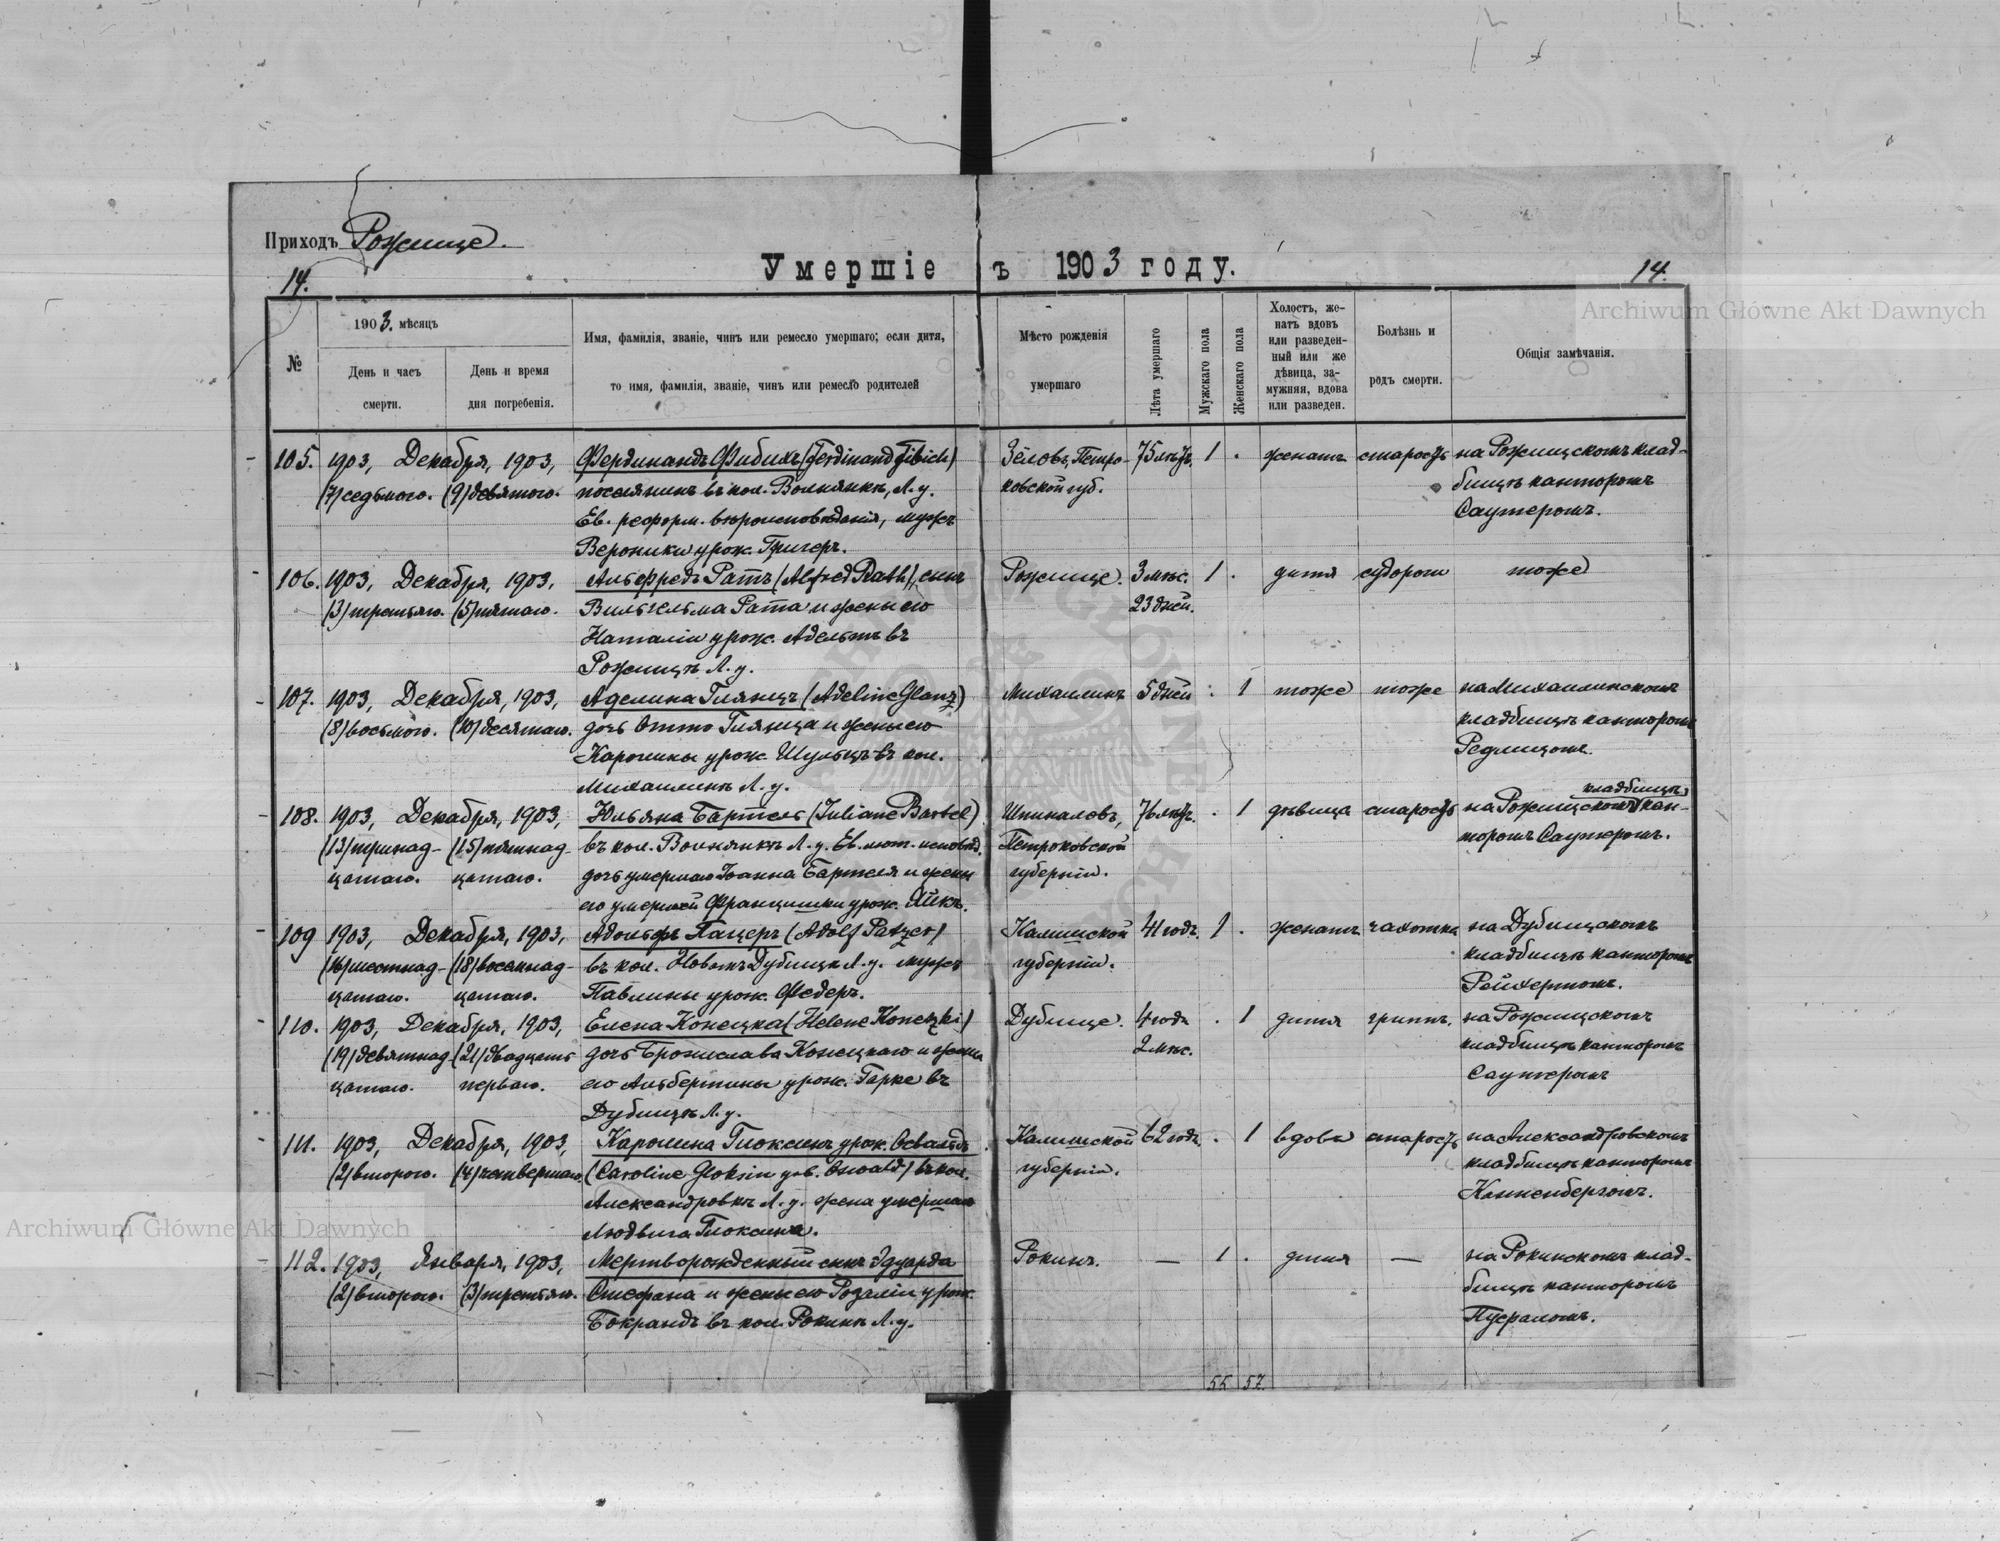 Приходъ Рожище.
14.
Умершіе ъ 1903 году.
14.
Archiwum Główne Akt Dawnych
№
1903. мѣсяцъ
День и часъ смерти.
День и время дня погребенія.
Имя, фамилія, званіе, чинъ или ремесло умершаго; если дитя,
то имя, фамилія, званіе, чинъ или ремесло родителей
Мѣсто рожденія
умершаго
Лѣта умершаго
Мужскаго пола
Женскаго пола
Холостъ, же-
натъ вдовъ
или разведен-
ный или же
дѣвица, за-
мужняя, вдова
или разведен.
Болѣзнь и
родъ смерти.
Общія замѣчанія.
105. 1903, Декабря, 1903, Фердинандъ Фибихъ (Ferdinand Fibich) Зеловъ, Петро- 75 лѣтъ. 1 . женатъ старость на Рожищскомъ клад-
(7) седьмого. (9) девятого. поселянинъ въ кол. Волнянкѣ, Л. у. ковской губ. бищѣ канторомъ
Ев. реформ. вѣроисповѣданія, мужъ Саутеромъ.
Вероники урож. Григеръ.
106. 1903, Декабря, 1903, Альфредъ Ратъ (Alfred Rath), сынъ Рожище. 3 мѣс. 1 . дитя судороги тоже
(3) третьяго. (5) пятаго. Вильгельма Рата и жены его 23 дней.
Наталіи урож. Адельтъ въ
Рожищѣ Л. у.
107. 1903, Декабря, 1903, Аделина Глянцъ (Adeline Glanz) Михаилинъ 5 дней . 1 тоже тоже на Михаилинскомъ
(8) восьмого. (10) десятаго. дочь Отто Глянца и жены его кладбищѣ канторомъ
Каролины урож. Шульцъ въ кол. Редлицомъ.
Михаилинѣ Л. у.
108. 1903, Декабря, 1903, Юльяна Бартель (Juliane Bartel) Шпиналовъ, 76 лѣтъ. . 1 дѣвица старость на Рожищскомъ кладбищѣ кан-
(13) тринад- (15) пятнад- въ кол. Волнянкѣ Л. у. Ев. лют. исповѣд. Петроковской торомъ Саутеромъ.
цатаго. цатаго. дочь умершаго Іоанна Бартеля и жены губерніи.
его умершей Францишки урож. Яйкъ.
109 1903, Декабря, 1903, Адольфъ Пацеръ (Adolf Patzer) Калишской 41 годъ. 1 . женатъ чахотка на Дубищскомъ
(16) шестнад- (18) восемнад- въ кол. Новомъ Дубищѣ Л. у. мужъ губерніи. кладбищѣ канторомъ
цатаго. цатаго. Павлины урож. Федеръ. Рейхертомъ.
110. 1903, Декабря, 1903, Елена Конецка (Helene Konetzki) Дубище. 4 года . 1 дитя гриппъ. на Рожищскомъ
(19) девятнад- (21) двадцать дочь Бронислава Конецкаго и жены 2 мѣс. кладбищѣ канторомъ
цатаго. перваго. его Альбертины урож. Гарке въ Саутеромъ
Дубищѣ Л. у.
111. 1903, Декабря, 1903, Каролина Глоксинъ урож. Освальдъ Калишской 62 года . 1 вдова старость на Александровскомъ
(2) второго. (4) четвертаго. (Caroline Gloksin geb. Oswald) въ кол. губерніи. кладбищѣ канторомъ
Александровкѣ Л. у. жена умершаго Конненбергомъ.
Людвига Глоксина.
112. 1903, Января, 1903, Мертворожденный сынъ Эдуарда Рокинъ. — 1 . дитя — на Рокинскомъ клад-
(2) второго. (3) третьяго. Стефана и жены его Розаліи урож. бищѣ канторомъ
Бокрандъ въ кол. Рокинѣ Л. у.
55 57.
Archiwum Główne Akt Dawnych